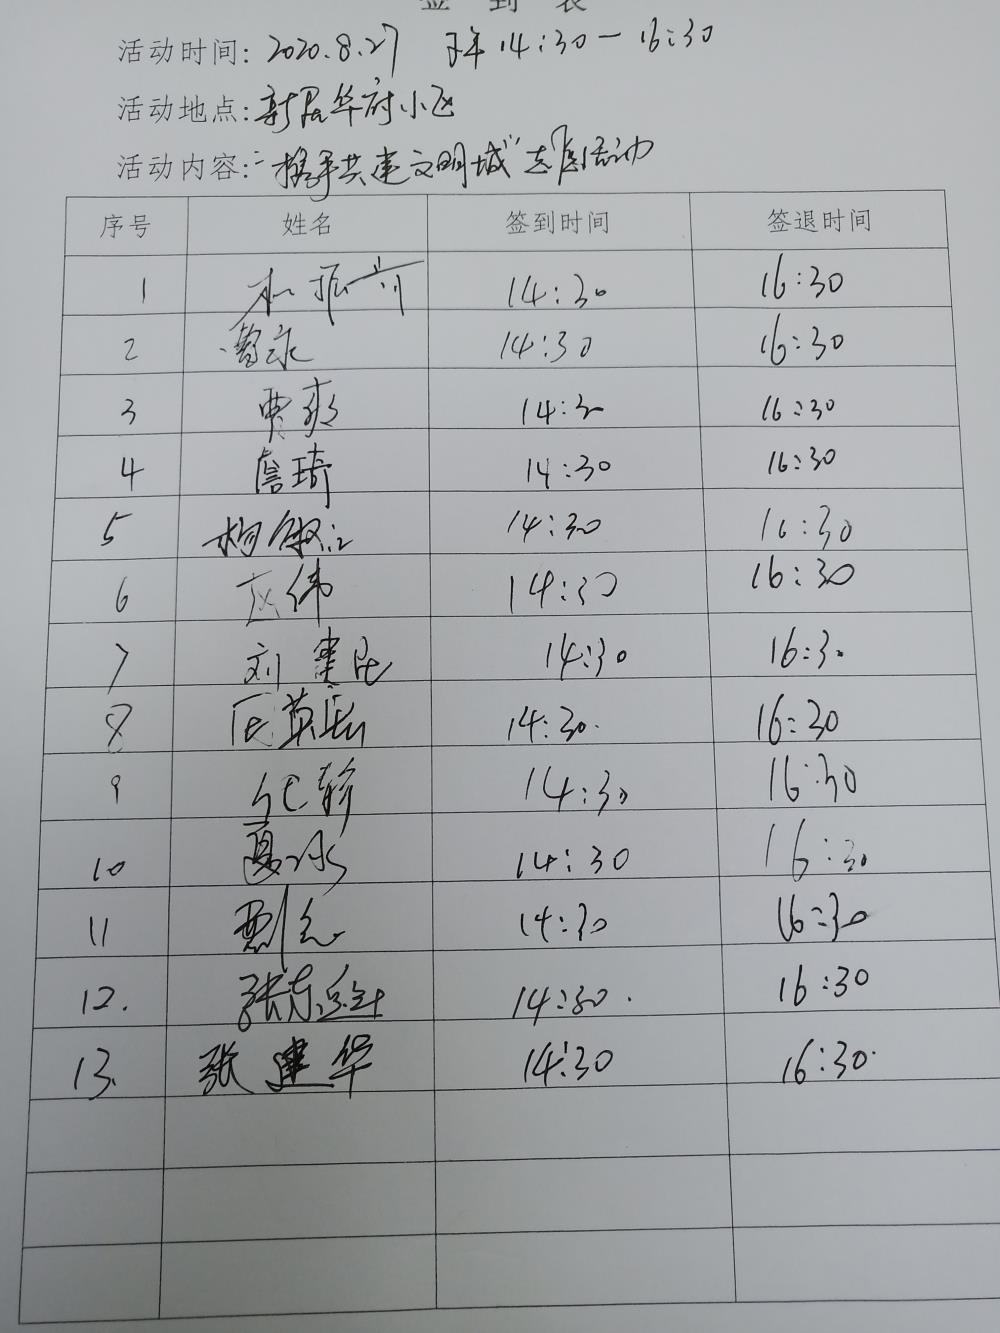 签到表
活动时间: 2020.8.27 下午14:30—16:30
活动地点: 新居华府小区
活动内容: "携手共建文明城"志愿活动
序号 姓名 签到时间 签退时间
1 14:30 16:30
2 14:30 16:30
3 贾爽 14:30 16:30
4 詹琦 14:30 16:30
5 14:30 16:30
6 赵伟 14:30 16:30
7 刘建民 14:30 16:30
8 14:30. 16:30
9 14:30 16:30
10 聂冰 14:30 16:30
11 14:30 16:30
12. 14:30. 16:30
13. 张建华 14:30 16:30.